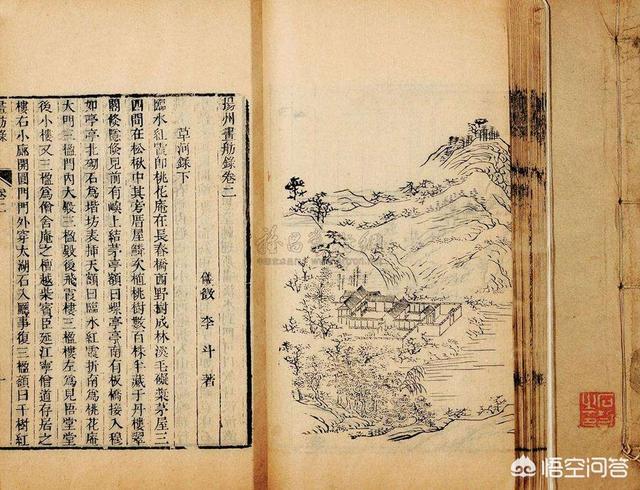 揚州畫舫錄卷二
儀徵 李斗著
草河錄下
臨水紅霞即桃花庵在長春橋西野樹成林溪毛礙槳茅屋三
四間在松楸中其旁厝屋鱗次植桃樹數百株半藏于丹樓翠
閣倏隱倏見前有嶼上結茅亭額曰螺亭亭南有板橋接入穆
如亭亭北砌石爲堦坊表插天額曰臨水紅霞折南爲桃花庵
大門三楹門內大殿三楹殿後飛霞樓三楹樓左爲見悟堂堂
後小樓又三楹爲僧舍庵之檀越柴賓臣延江寧僧道存居之
樓右小廊開圓門門外穿太湖石入廳事復三楹額曰千樹紅
畫舫錄
卷二
一
悟空问答